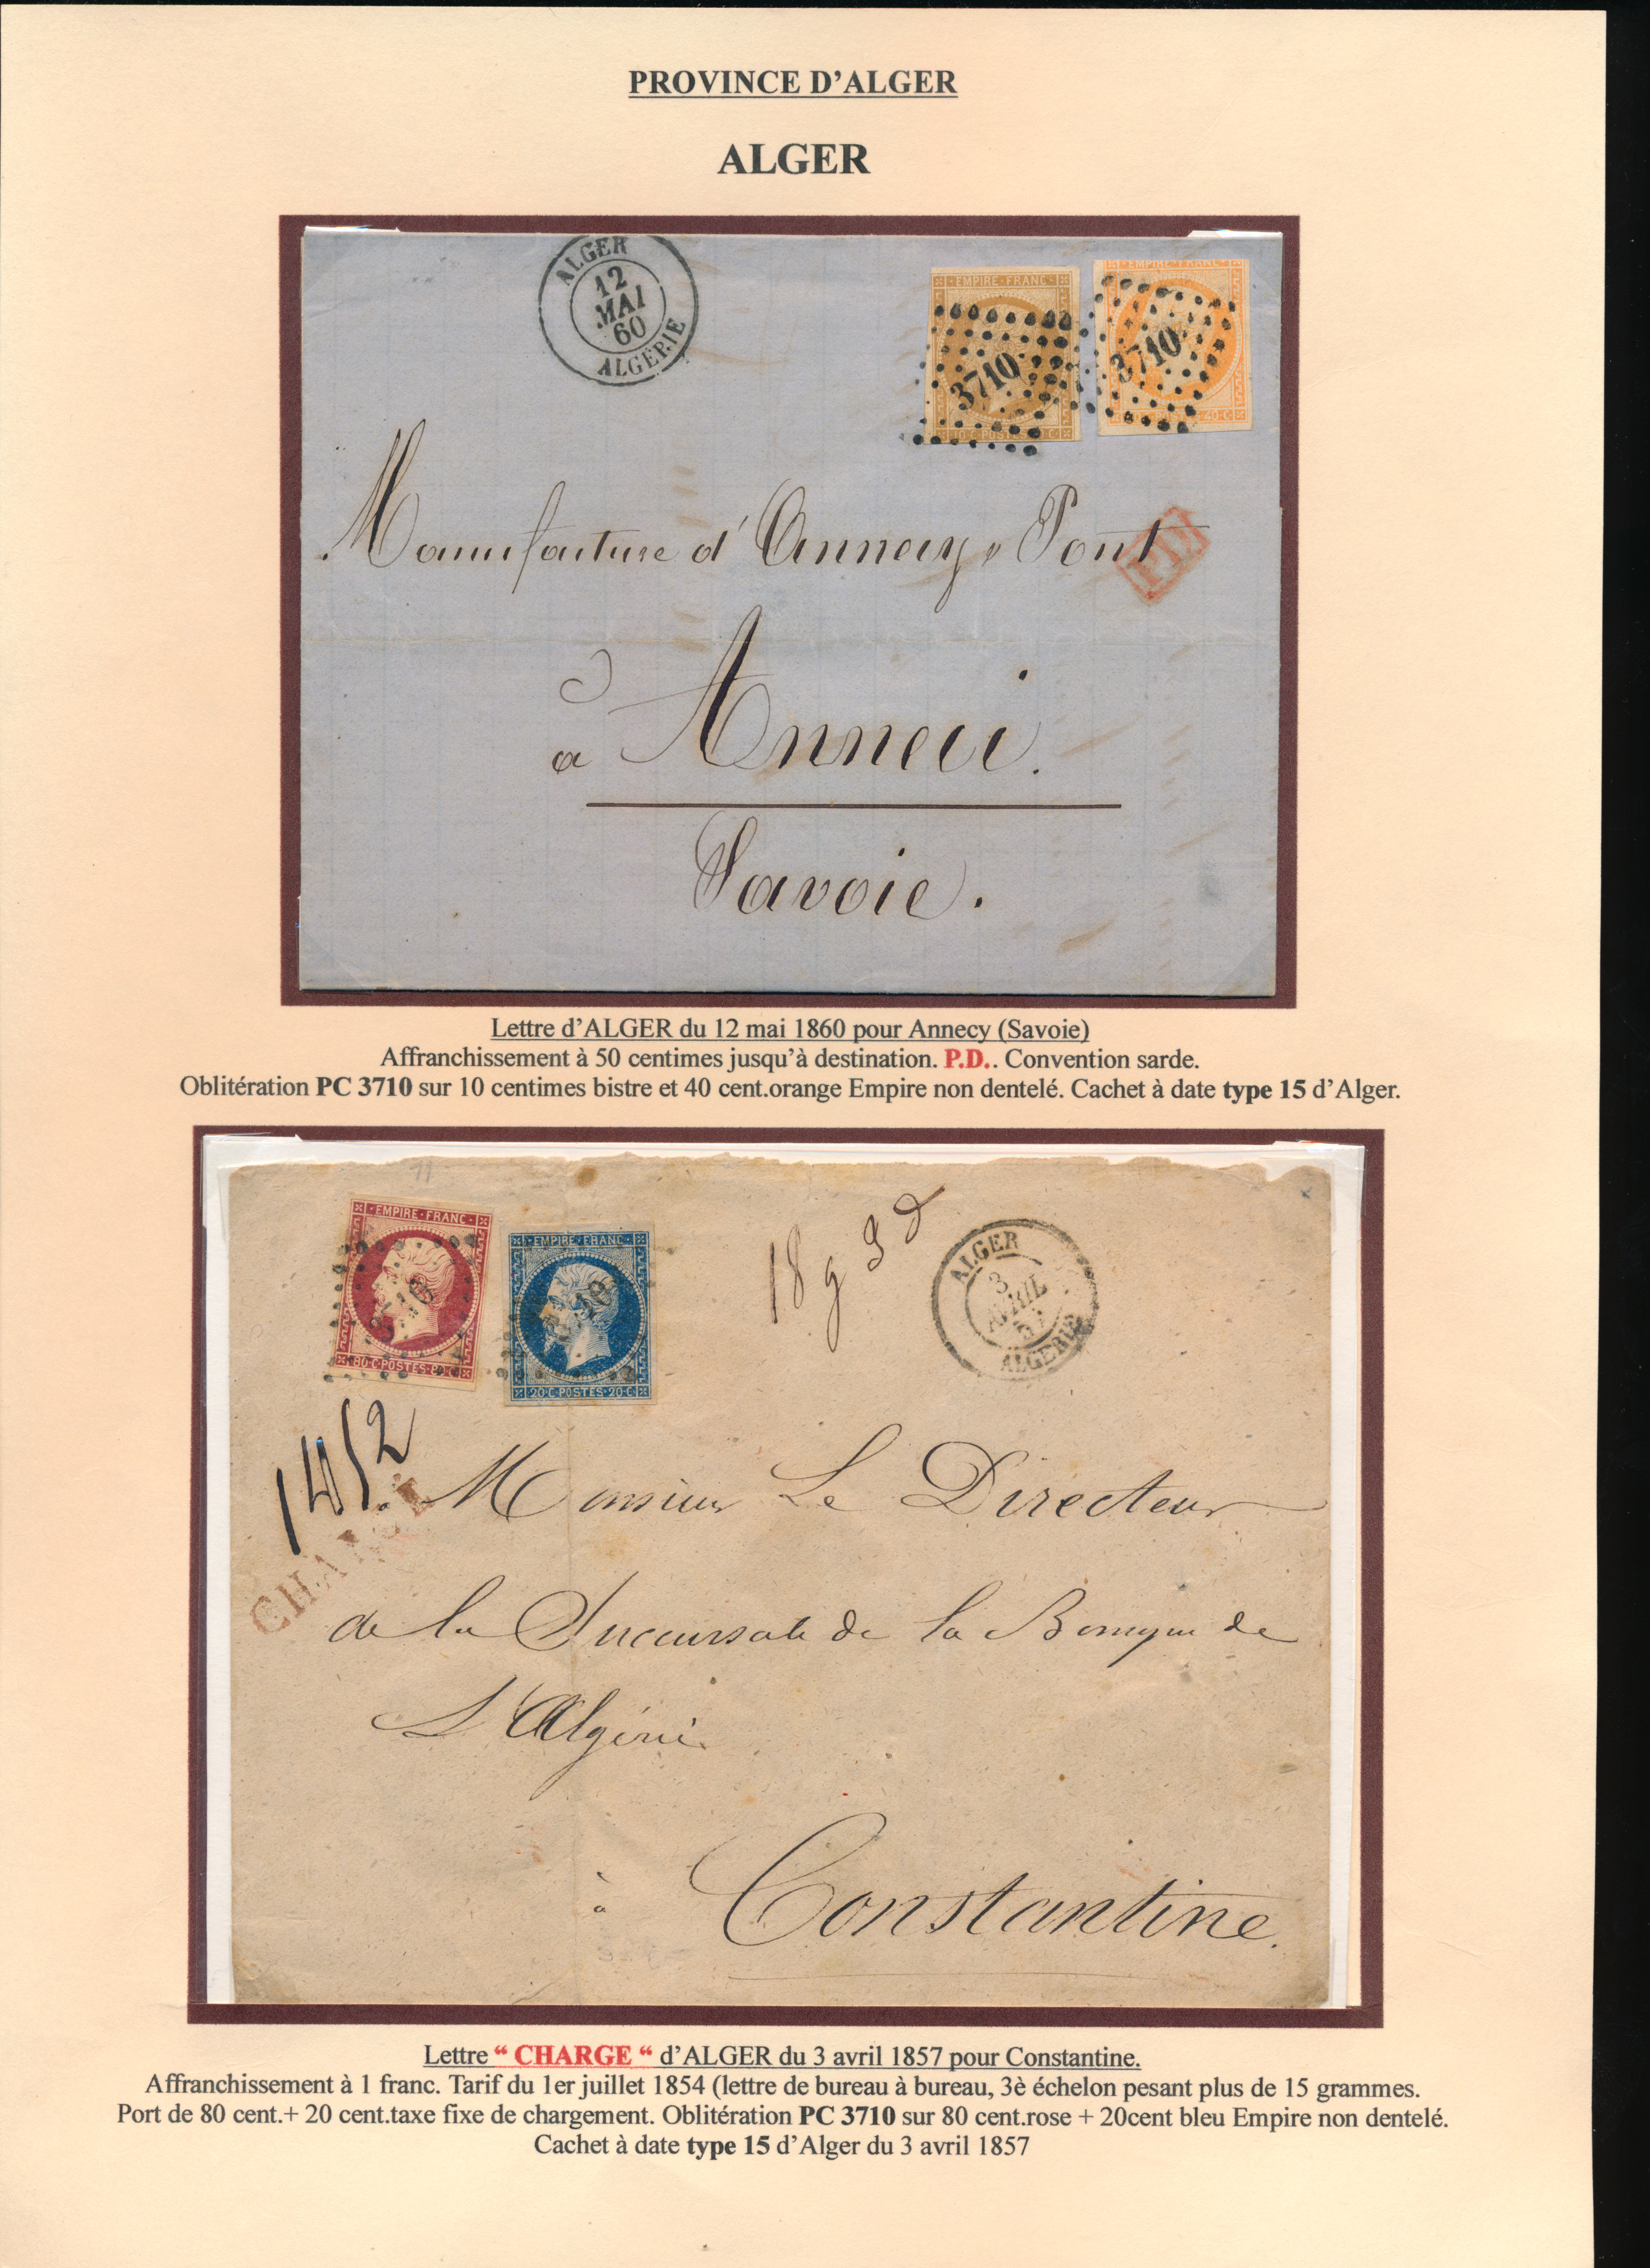 PROVINCE D'ALGER
ALGER
ALGER
12
MAI
60
ALGÉRIE
EMPIRE FRANC
EMPIRE FRANC
3710
3710
10 C POSTES 10 C
40 C
Manufacture d'Annecy, Pont
PD
à Anneci.
Savoie.
Lettre d'ALGER du 12 mai 1860 pour Annecy (Savoie)
Affranchissement à 50 centimes jusqu'à destination. P.D.. Convention sarde.
Oblitération PC 3710 sur 10 centimes bistre et 40 cent.orange Empire non dentelé. Cachet à date type 15 d'Alger.
EMPIRE FRANC
EMPIRE FRANC
3710
3710
80 C POSTES 80 C
20 C POSTES 20 C
18 g 9 d
ALGER
3
AVRIL
57
ALGÉRIE
1452
CHARGÉ
Monsieur Le Directeur
de la Succursale de la Banque de
L'Algérie
à
Constantine.
Lettre “ CHARGE “ d'ALGER du 3 avril 1857 pour Constantine.
Affranchissement à 1 franc. Tarif du 1er juillet 1854 (lettre de bureau à bureau, 3è échelon pesant plus de 15 grammes.
Port de 80 cent.+ 20 cent.taxe fixe de chargement. Oblitération PC 3710 sur 80 cent.rose + 20cent bleu Empire non dentelé.
Cachet à date type 15 d'Alger du 3 avril 1857